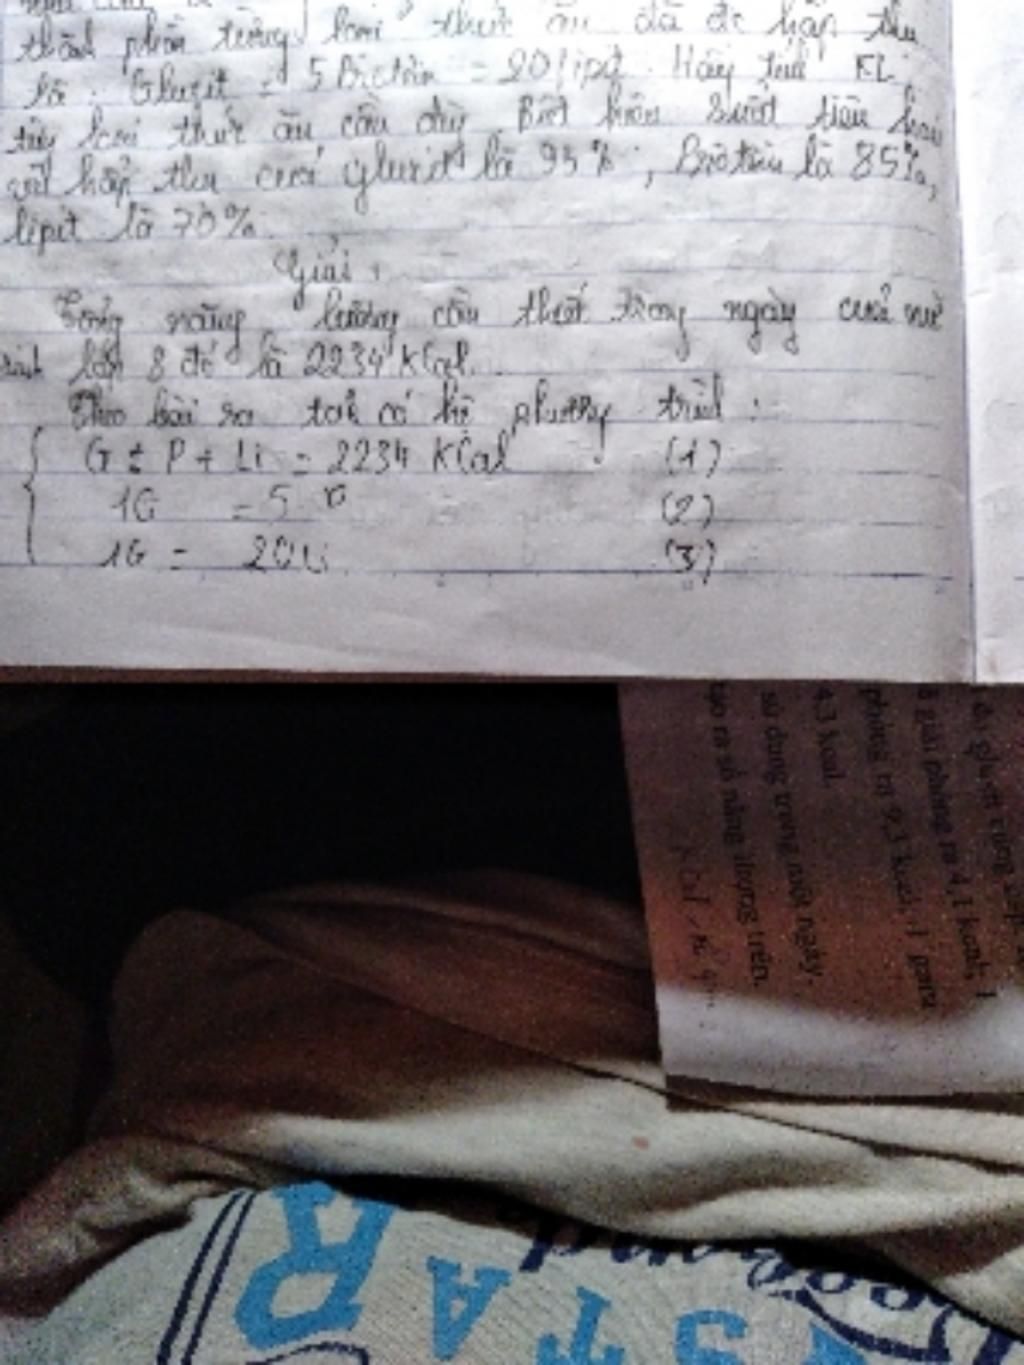 thành phần từng loại thức ăn đã đc hấp thu
là: Gluxit = 5 Prôtêin = 20 lipit. Hãy tính KL
từng loại thức ăn cần dùng. Biết hiệu suất tiêu hóa
và hấp thu của gluxit là 95%; Prôtêin là 85%,
lipit là 70%.
Giải:
Tổng năng lượng cần thiết trong ngày của nữ
sinh lớp 8 đó là 2234 KCal.
Theo bài ra ta có hệ phương trình:
G + P + Li = 2234 KCal (1)
1G = 5 P (2)
1G = 20Li (3)
giải phóng ra 4,1 kcal; 1
phóng ra 9,3 kcal; 1 gam
4,3 kcal.
sử dụng trong một ngày.
tạo ra số năng lượng trên.
STAR